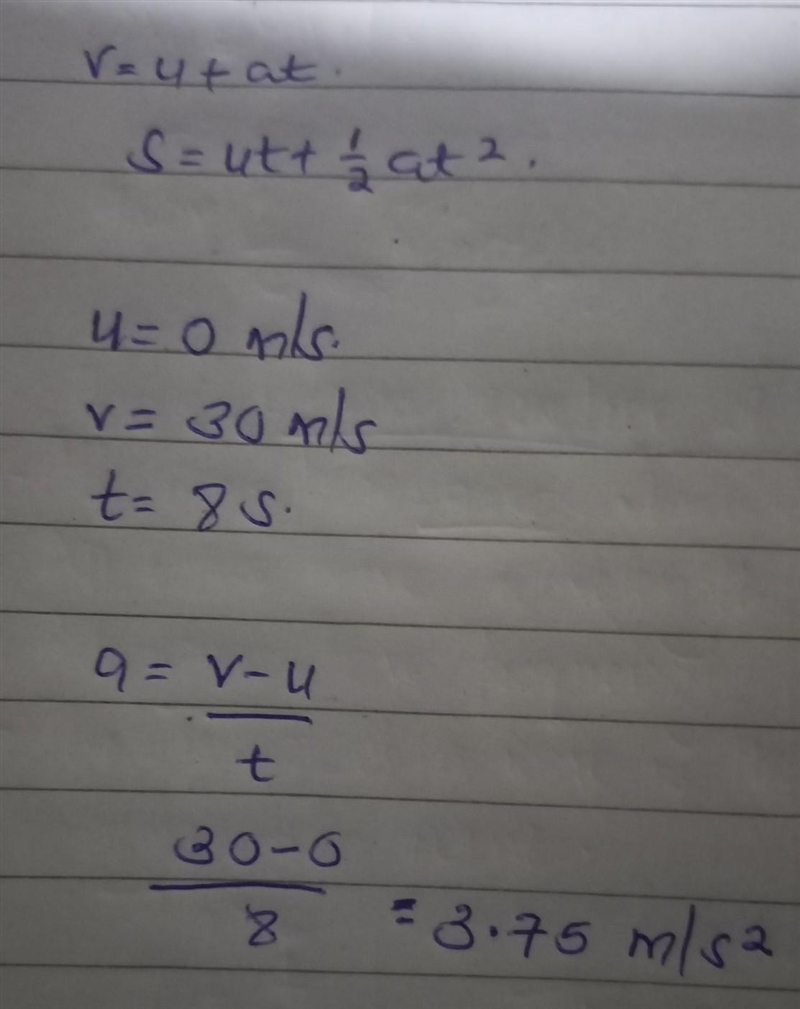 v = u + at.
S = ut + 1/2 at².
u = 0 m/s.
v = 30 m/s
t = 8 s.
a = v - u
t
30 - 0
8 = 3.75 m/s²